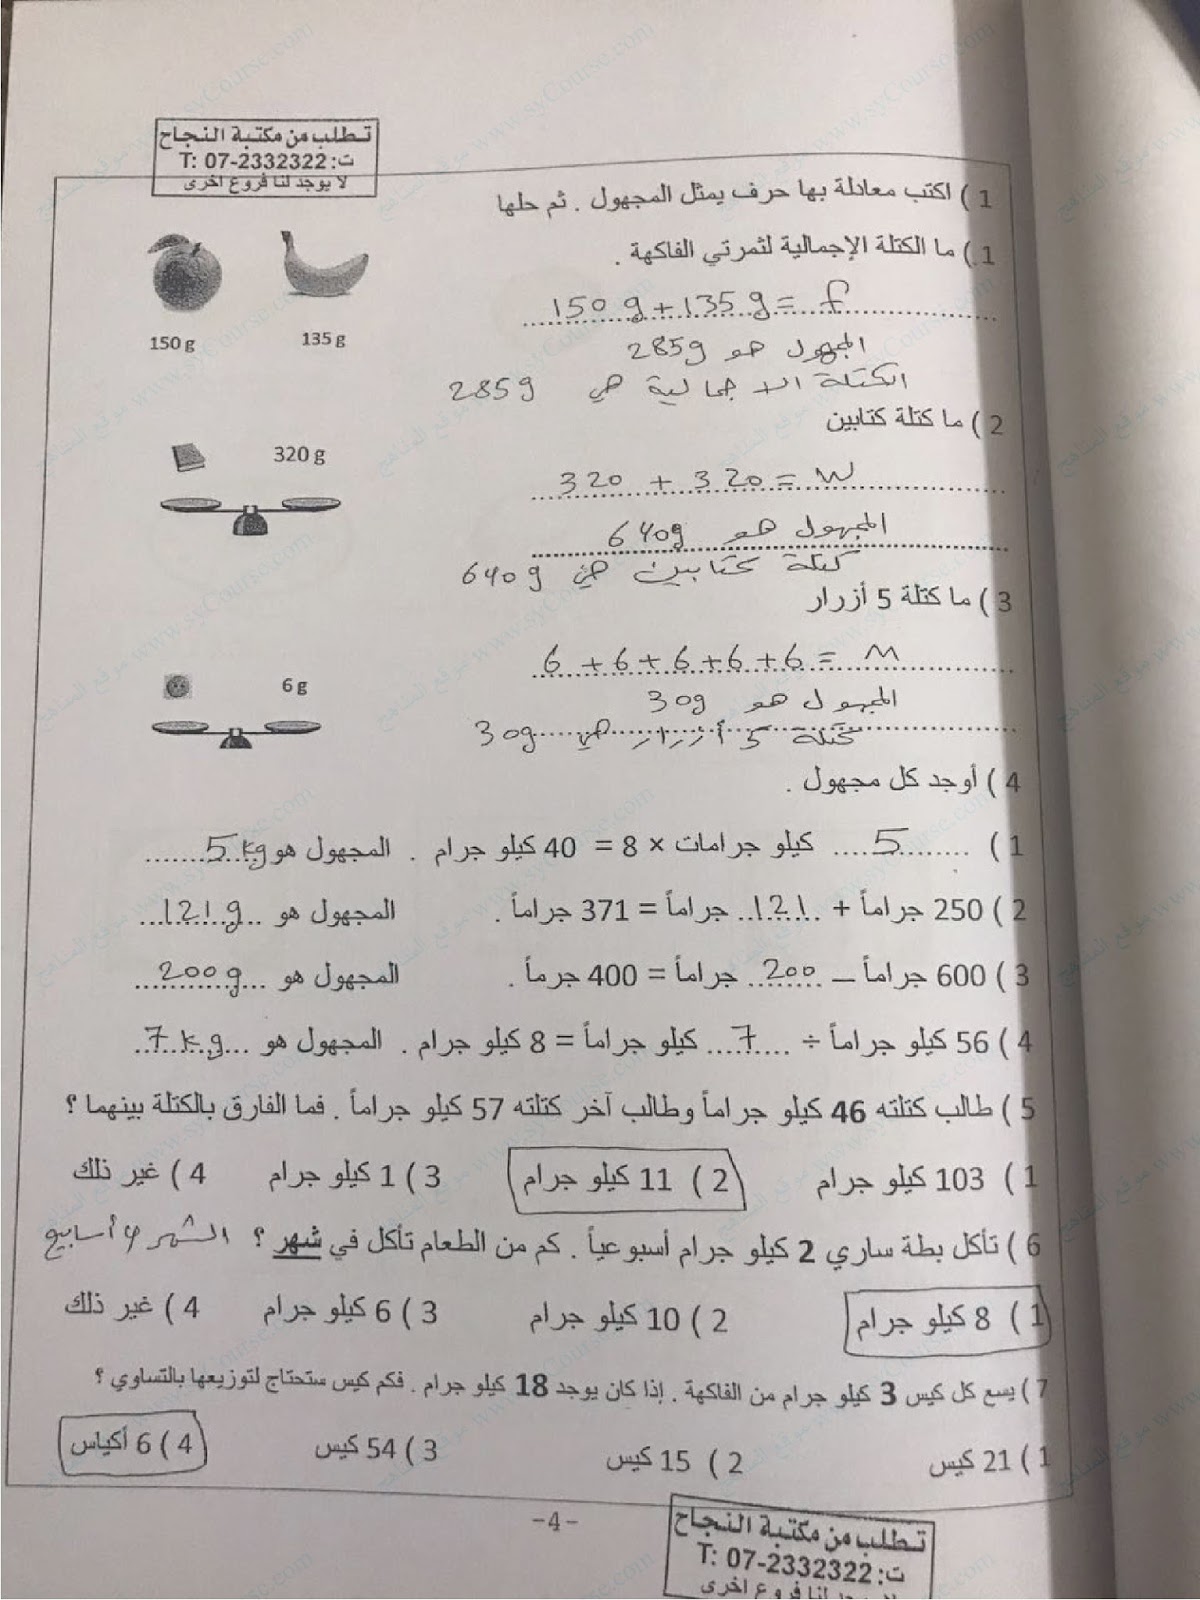 تطلب من مكتبة النجاح
ت: T: 07-2332322
لا يوجد لنا فروع اخرى
1 ) اكتب معادلة بها حرف يمثل المجهول . ثم حلها
1 ) ما الكتلة الإجمالية لثمرتي الفاكهة .
150 g
135 g
150 g + 135 g = f
المجهول هو 285g
الكتلة الاجمالية هي 285g
2 ) ما كتلة كتابين
320 g
320 + 320 = W
المجهول هو 640g
كتلة كتابين هي 640g
3 ) ما كتلة 5 أزرار
6 g
6 + 6 + 6 + 6 + 6 = M
المجهول هو 30g
كتلة 5 أزرار هي 30g
4 ) أوجد كل مجهول .
1 ) ......5...... كيلو جرامات × 8 = 40 كيلو جرام . المجهول هو 5 kg
2 ) 250 جراماً + 121 جراماً = 371 جراماً . المجهول هو 121g
3 ) 600 جراماً – 200 جراماً = 400 جرماً . المجهول هو 200g
4 ) 56 كيلو جراماً ÷ 7 كيلو جراماً = 8 كيلو جرام . المجهول هو 7 kg
5 ) طالب كتلته 46 كيلو جراماً وطالب آخر كتلته 57 كيلو جراماً . فما الفارق بالكتلة بينهما ؟
1 ) 103 كيلو جرام 2 ) 11 كيلو جرام 3 ) 1 كيلو جرام 4 ) غير ذلك
6 ) تأكل بطة ساري 2 كيلو جرام أسبوعياً . كم من الطعام تأكل في شهر ؟ الشهر 4 أسابيع
1 ) 8 كيلو جرام 2 ) 10 كيلو جرام 3 ) 6 كيلو جرام 4 ) غير ذلك
7 ) يسع كل كيس 3 كيلو جرام من الفاكهة . إذا كان يوجد 18 كيلو جرام . فكم كيس ستحتاج لتوزيعها بالتساوي ؟
1 ) 21 كيس 2 ) 15 كيس 3 ) 54 كيس 4 ) 6 أكياس
-4-
تطلب من مكتبة النجاح
ت: T: 07-2332322
لا يوجد لنا فروع اخرى
موقع المناهج www.syCourse.com